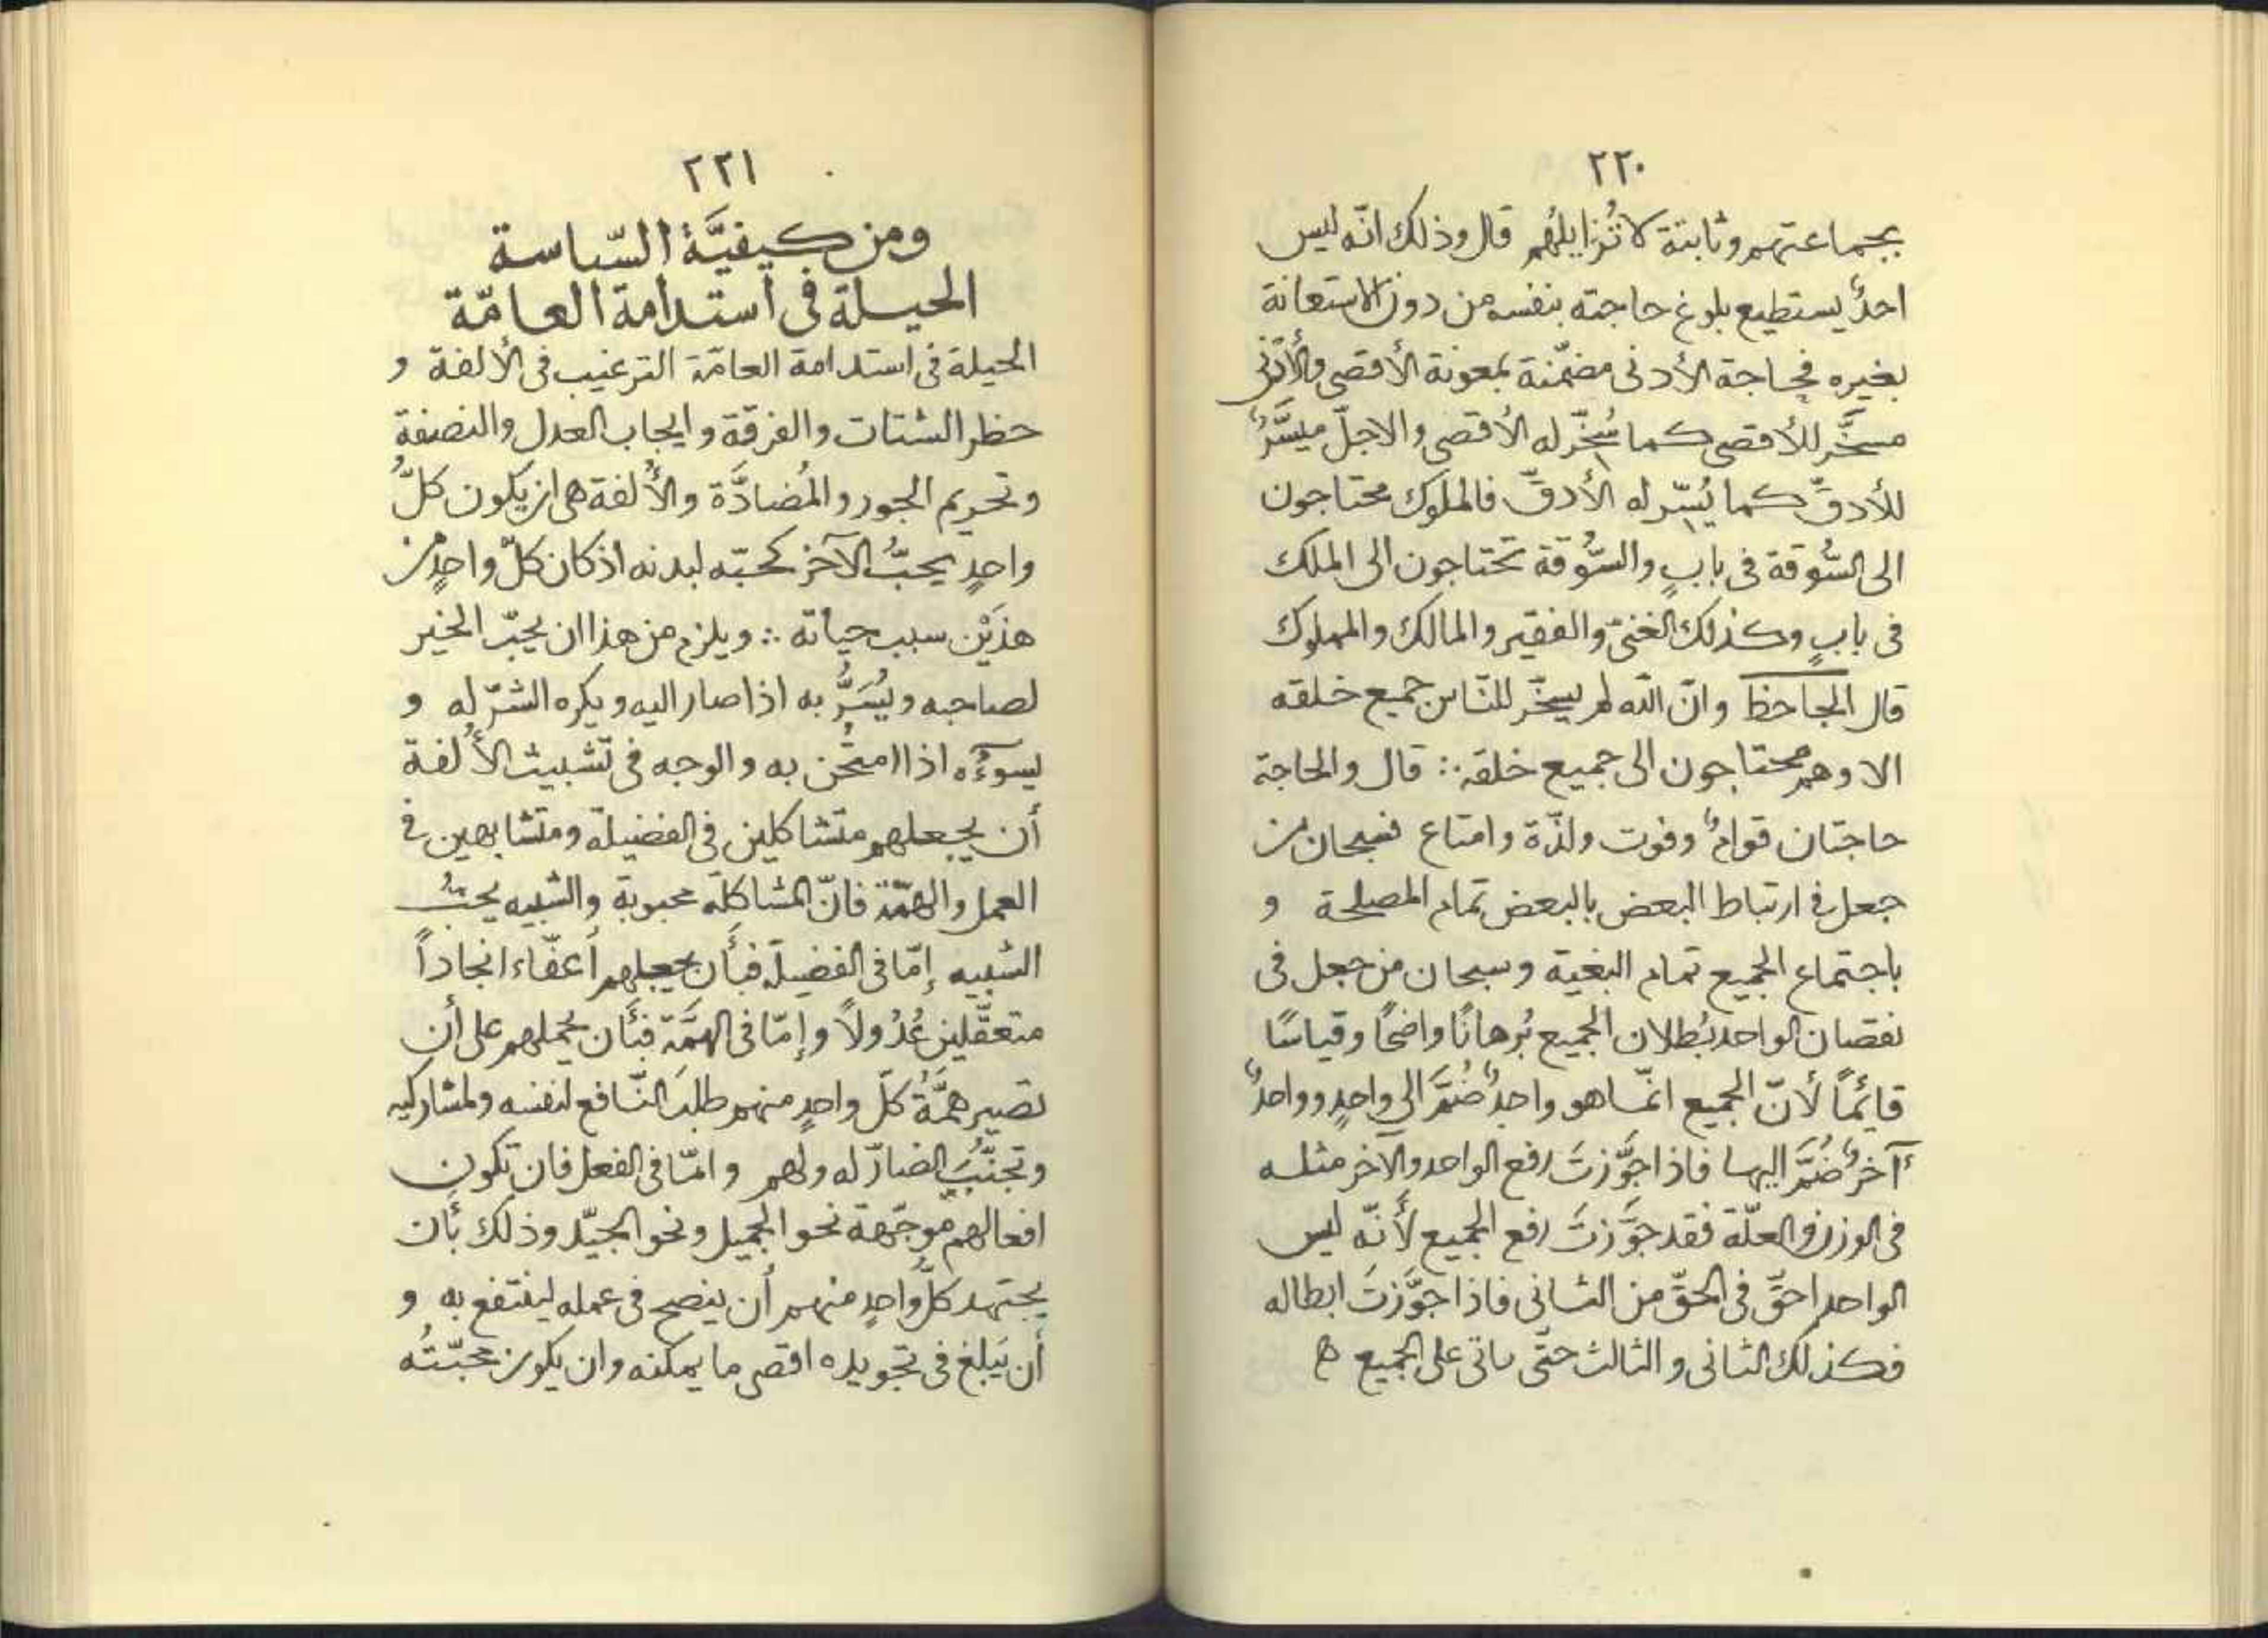 ٢٢٠
بجماعتهم وثابتة لا تُزايلُهم قال وذلك انّه ليس
احدٌ يستطيع بلوغ حاجته بنفسه من دون الاستعانة
بغيره فحاجة الأدنى مضمّنة بمعونة الأقصى والأدنى
مسخَّر للأقصى كما سُخّر له الأقصى والاجلّ ميسَّرٌ
للأدقّ كما يُسّر له الأدقّ فالملوك محتاجون
الى السُّوقة فى بابٍ والسُّوقة تحتاجون الى الملك
فى بابٍ وكذلك الغنىّ والفقير والمالك والمملوك
قال الجاحظ وانّ الله لم يسخّر للنّاس جميع خلقه
الا وهم محتاجون الى جميع خلقه ∴ قال والحاجة
حاجتان قوامٌ وقوت ولذّة وامتاع فسبحان من
جعل فى ارتباط البعض بالبعض تمام المصلحة و
باجتماع الجميع تمام البغية وسبحان من جعل فى
نقصان الواحد بُطلان الجميع بُرهانًا واضحًا وقياسًا
قائمًا لأنّ الجميع انّما هو واحدٌ ضُمَّ الى واحدٍ وواحدٌ
آخرٌ ضُمَّ اليها فاذا جوَّزتَ رفع الواحد والاخر مثله
فى الوزن والعلّة فقد جوَّزتَ رفع الجميع لأنّه ليس
الواحد احقّ فى الحقّ من الثانى فاذا جوَّزتَ ابطاله
فكذلك الثانى والثالث حتّى ياتى على الجميع ه
٢٢١
ومن كيفيَّة السّياسة
الحيلة فى استدامة العامّة
الحيلة فى استدامة العامّة الترغيب فى الألفة و
حظر الشتات والفرقة وايجاب العدل والنصفة
وتحريم الجور والمُضادَّة والأُلفة هى ان يكون كلُّ
واحدٍ يحبُّ الآخر كحبّه لبدنه اذ كان كلّ واحدٍ من
هذَيْن سبب حياته ∴ ويلزم من هذا ان يحبّ الخير
لصاحبه ويُسَرُّ به اذا صار اليه ويكره الشرّ له و
يسوءُه اذا امتُحن به والوجه فى تشبيث الأُلفة
أن يجعلهم متشاكلين فى الفضيلة ومتشابهين فى
العمل والهمّة فانّ المشاكلة محبوبة والشبيه يحبُّ
الشبيه إمّا فى الفضيلة فبأن يجعلهم أعفّاء انجاداً
متعقّلين عُدُولاً وإمّا فى الهمَّة فبأن يحملهم على أن
تصير همَّةُ كلّ واحدٍ منهم طلبَ النّافع لنفسه ولمشاركيه
وتجنّبَ الضارّ له ولهم وامّا فى الفعل فان تكون
افعالهم موجّهة نحو الجميل ونحو الجيّد وذلك بأن
يجتهد كلّ واحدٍ منهم أن ينصح فى عمله لينتفع به و
أن يَبلغ فى تجويده اقصى ما يمكنه وان يكون محبّتُه